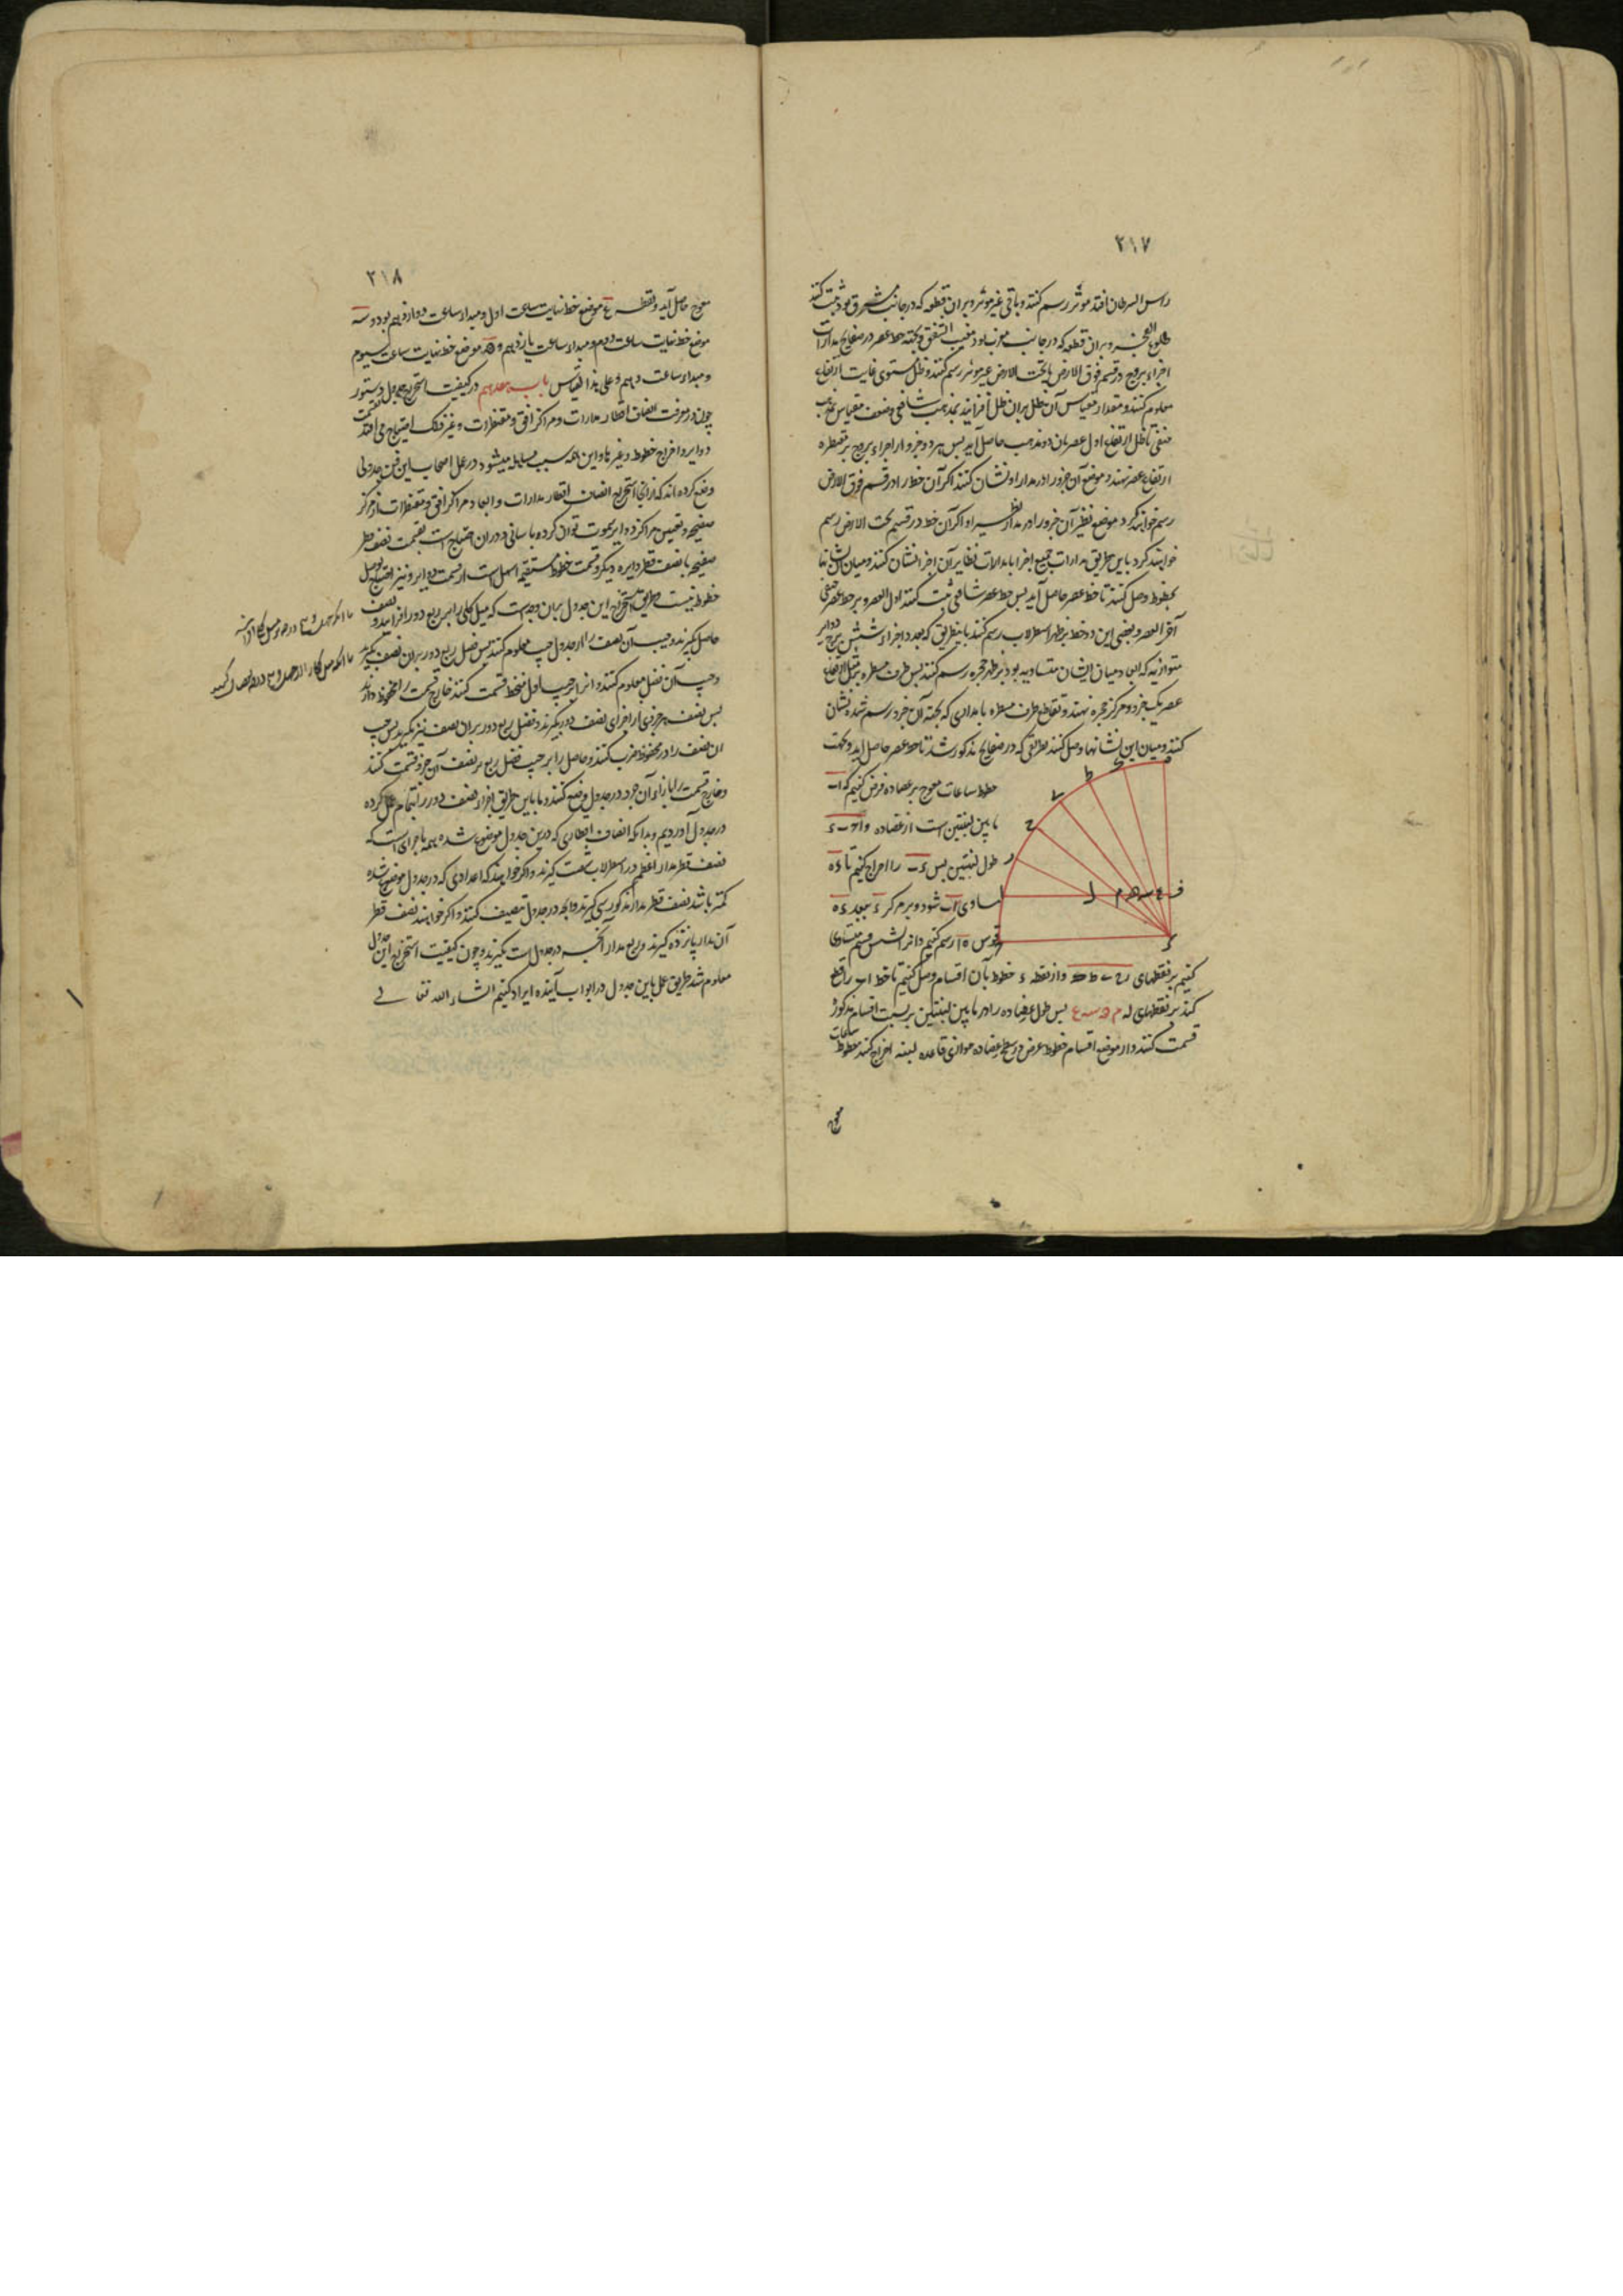 ۲۱۷
راس السرطان افتد موثر رسم کنند و باقی غیر موثر و بران قطعه که در جانب مشرق بود ثبت کنند
طلوع الفجر و بران قطعه که در جانب مغرب بود مغیب الشفق و بجهة خط عصر در صفایح مدارات
اجزاء بروج در قسم فوق الارض یا تحت الارض غیر موثر رسم کنند و ظل مستوی غایت ارتفاع
معلوم کنند و مقدار مقیاس آن ظل بران ظل افزایند بمذهب شافعی و ضعف مقیاس بمذهب
حنفی تا ظل ارتفاع اول عصر بان دو مذهب حاصل آید پس هر دو جزو از اجزاء بروج بر مقنطره
ارتفاع عصر نهند و موضع آن جزو را در مدار او نشان کنند اگر آن خط را در قسم فوق الارض
رسم خواهند کرد و موضع نظیر آن جزو را در مدار نظیر او اگر آن خط در قسم تحت الارض رسم
خواهند کرد باین طریق مدارات جمیع اجزا یا مدارات نظایر آن اجزا نشان کنند و میان آن نشانها
بخطوط وصل کنند تا خط عصر حاصل آید پس خط عصر شافعی ثبت کنند اول العصر و بر خط عصر حنفی
آخر العصر و بعضی این دو خط بر ظهر اسطرلاب رسم کنند باینطریق که بعدد اجزاء شش برج دوایر
متوازیه که ابعاد میان ایشان متساویه بود بر ظهر حجره رسم کنند پس طرف مسطره بر مثل ارتفاع
عصر یک جزو و مرکز حجره نهند و تقاطع طرف مسطره با مداری که بجهة آن جزو رسم شده نشان
کنند و میان این نشانها وصل کنند بطریقی که در صفایح مذکور شد تا خط عصر حاصل آید و بجهت
خطوط ساعات معوج بر عضاده فرض کنیم که اب
مابین لبنتین است از عضاده و اح ب ء
طول لبنتین پس ء ب را اخراج کنیم تا ء ه
مساوی اب شود و بر مرکز ء ببعد ء ه
قوس ه ا رسم کنیم و انرا بشش قسم متساوی
کنیم بر نقطهای ر ح ط ی ک و از نقطه ء خطوط بآن اقسام وصل کنیم تا خط اب را قطع
کند بر نقطهای ل م ن س ع پس طول عضاده را در مابین لبنتین بر نسبت اقسام مذکوره
قسمت کنند و از مواضع اقسام خطوط عرض در سطح عضاده موازی قاعده لبنه اخراج کنند خطوط ساعات
معوج
۲۱۸
معوج حاصل آید و نقطه ع موضع خط نهایت ساعت اول و مبداء ساعت دوازدهم بود و س
موضع خط نهایت ساعت دوم و مبداء ساعت یازدهم و ن موضع خط نهایت ساعت سیوم
و مبداء ساعت دهم و علی هذا القیاس باب هجدهم در کیفیت استخراج جدول دستور
چون در معرفت انصاف اقطار مدارات و مراکز افق و مقنطرات و غیر ذلک احتیاج می افتد بقسمت
دوایر و اخراج خطوط و غیرها و این همه سبب مساهله میشود در عمل اصحاب این فن جدولی
وضع کرده اند که از برای استخراج انصاف اقطار مدارات و ابعاد مراکز افق و مقنطرات از مرکز
صفیحه و تعیین مراکز دوایر سموت توان کرد بآسانی و دران احتیاج است بقسمت نصف قطر
صفیحه یا نصف قطر دایره دیگر و قسمت خطوط مستقیم اسهل است از قسمت دوایر و نیز احتیاج بوصل
خطوط نیست و طریق استخراج این جدول بران وجه است که میل کلی را بر ربع دور افزایند و نصف
حاصل بگیرند و جیب آن نصف را از جدول جیب معلوم کنند پس فضل ربع دور بران نصف بگیرند
و جیب آن فضل معلوم کنند و انرا بر جیب اول منحط قسمت کنند خارج قسمت را محفوظ دارند
پس نصف هر جزوی از اجزای نصف دور بگیرند و فضل ربع دور بران نصف نیز بگیرند پس جیب
ان نصف را در محفوظ ضرب کنند و حاصل را بر جیب فضل ربع بر نصف آن جزو قسمت کنند
و خارج قسمت را بازاء آن جزو در جدول وضع کنند و ما باین طریق اجزاء نصف دور را بتمام عمل کرده
در جدول آوردیم و بدانکه انصاف اقطاری که درین جدول موضوع شده همه باجزای است که
نصف قطر مدار اعظم در اسطرلاب شصت گیرند و اگر خواهند که اعدادی که در جدول موضوع شده
کمتر باشد نصف قطر مدار مذکور سی گیرند و انچه در جدول تنصیف کنند و اگر خواهند نصف قطر
آن مدار پانزده گیرند و ربع مدار انچه در جدول است بگیرند و چون کیفیت استخراج این جدول
معلوم شد طریق عمل باین جدول در ابواب آینده ایراد کنیم انشاء الله تعالی